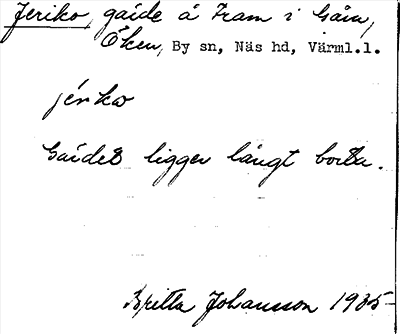 Jeriko, gärde å Fram i Gåin,
Öken, By sn, Näs hd, Värml.l.
jérko
Gärdet ligger långt borta.
Britta Johansson 1935